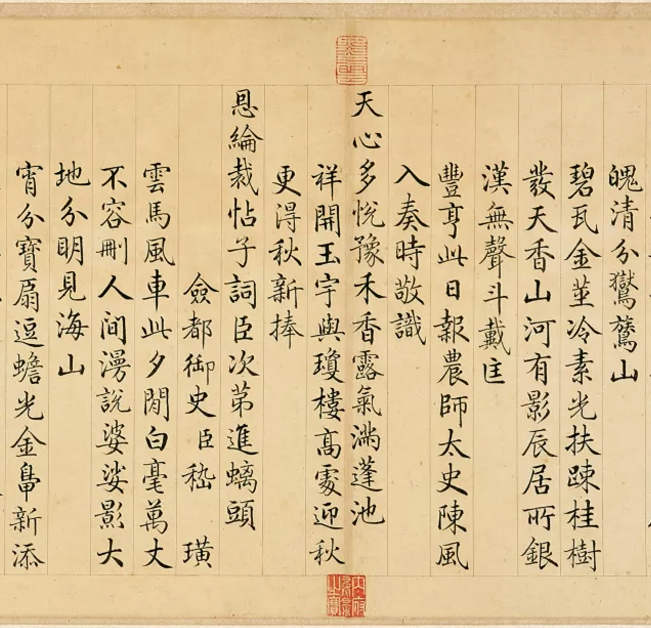 魄清分鷲鷲山
碧瓦金莖冷素光扶疎桂樹
發天香山河有影辰居所銀
漢無聲斗戴匡
豐亨此日報農師太史陳風
入奏時敬識
天心多悅豫禾香露氣滿蓬池
祥開玉宇與瓊樓高處迎秋
更得秋新捧
恩綸裁帖子詞臣次苐進螭頭
僉都御史臣嵇 璜
雲馬風車此夕閒白毫萬丈
不容刪人間漫說婆娑影大
地分明見海山
宵分寶扇逗蟾光金鼎新添